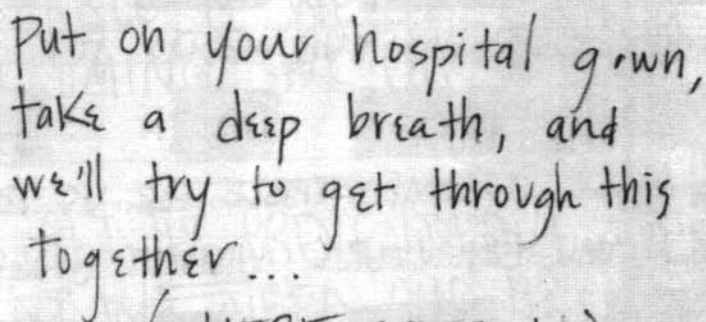 Put on your hospital gown,
take a deep breath, and
we'll try to get through this
together...